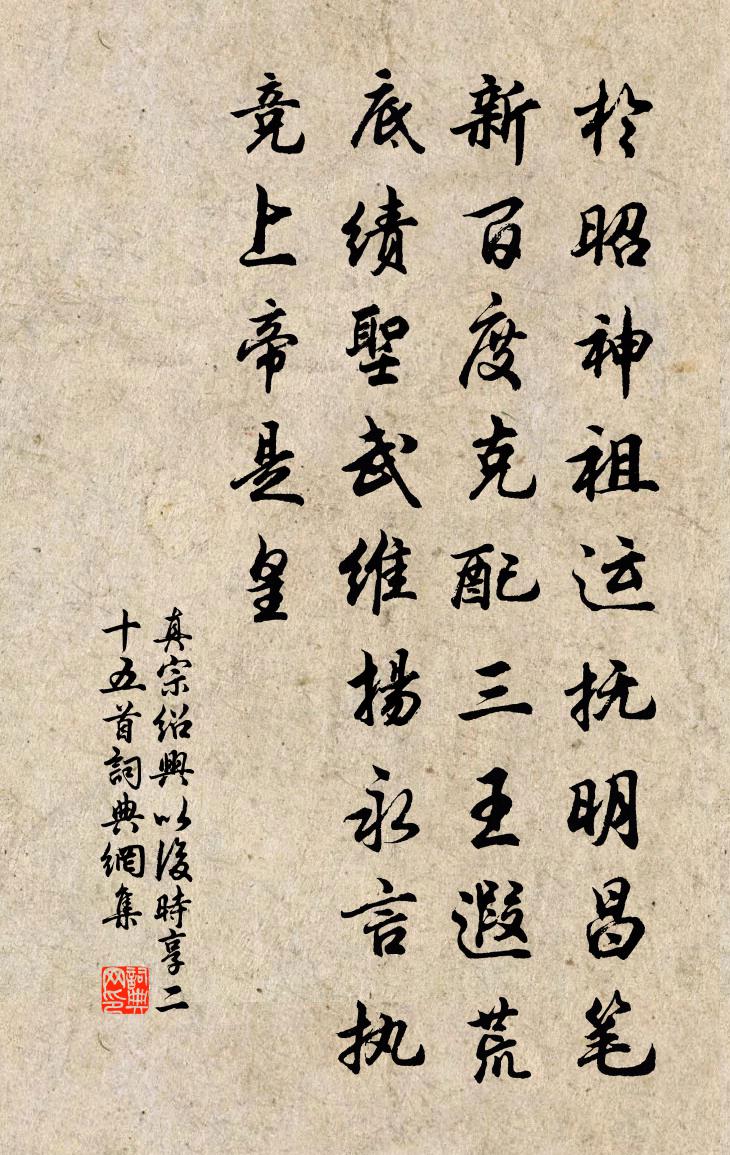 於昭神祖运抚明昌笔
新百度克配三王遐荒
底绩聖武维揚永言执
竞上帝是皇
真宗绍興以後時享二
十五首詞典網集
詞典网印